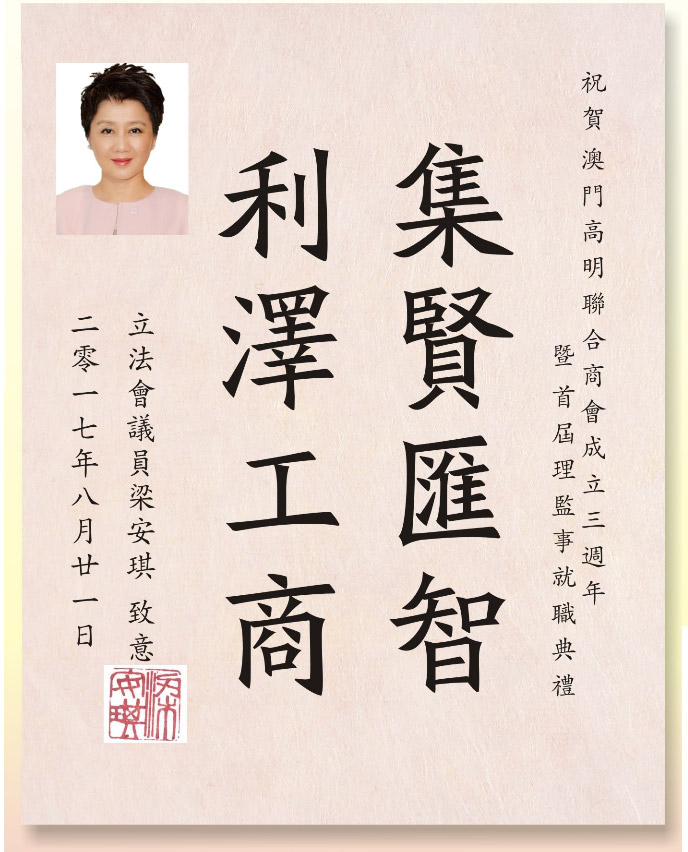 祝賀澳門高明聯合商會成立三週年
暨首屆理監事就職典禮
集賢匯智
利澤工商
立法會議員梁安琪 致意
二零一七年八月廿一日
梁安琪